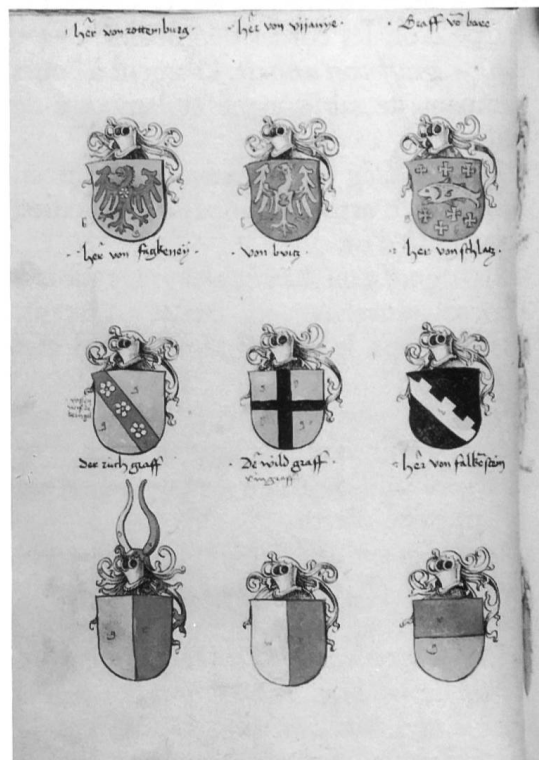 her von rottemburg
her von vijanye
Graff vo bare
her von fagkeney
von bvitz
her von schlatz
der ruch graff
De wild graff
her von falkestein